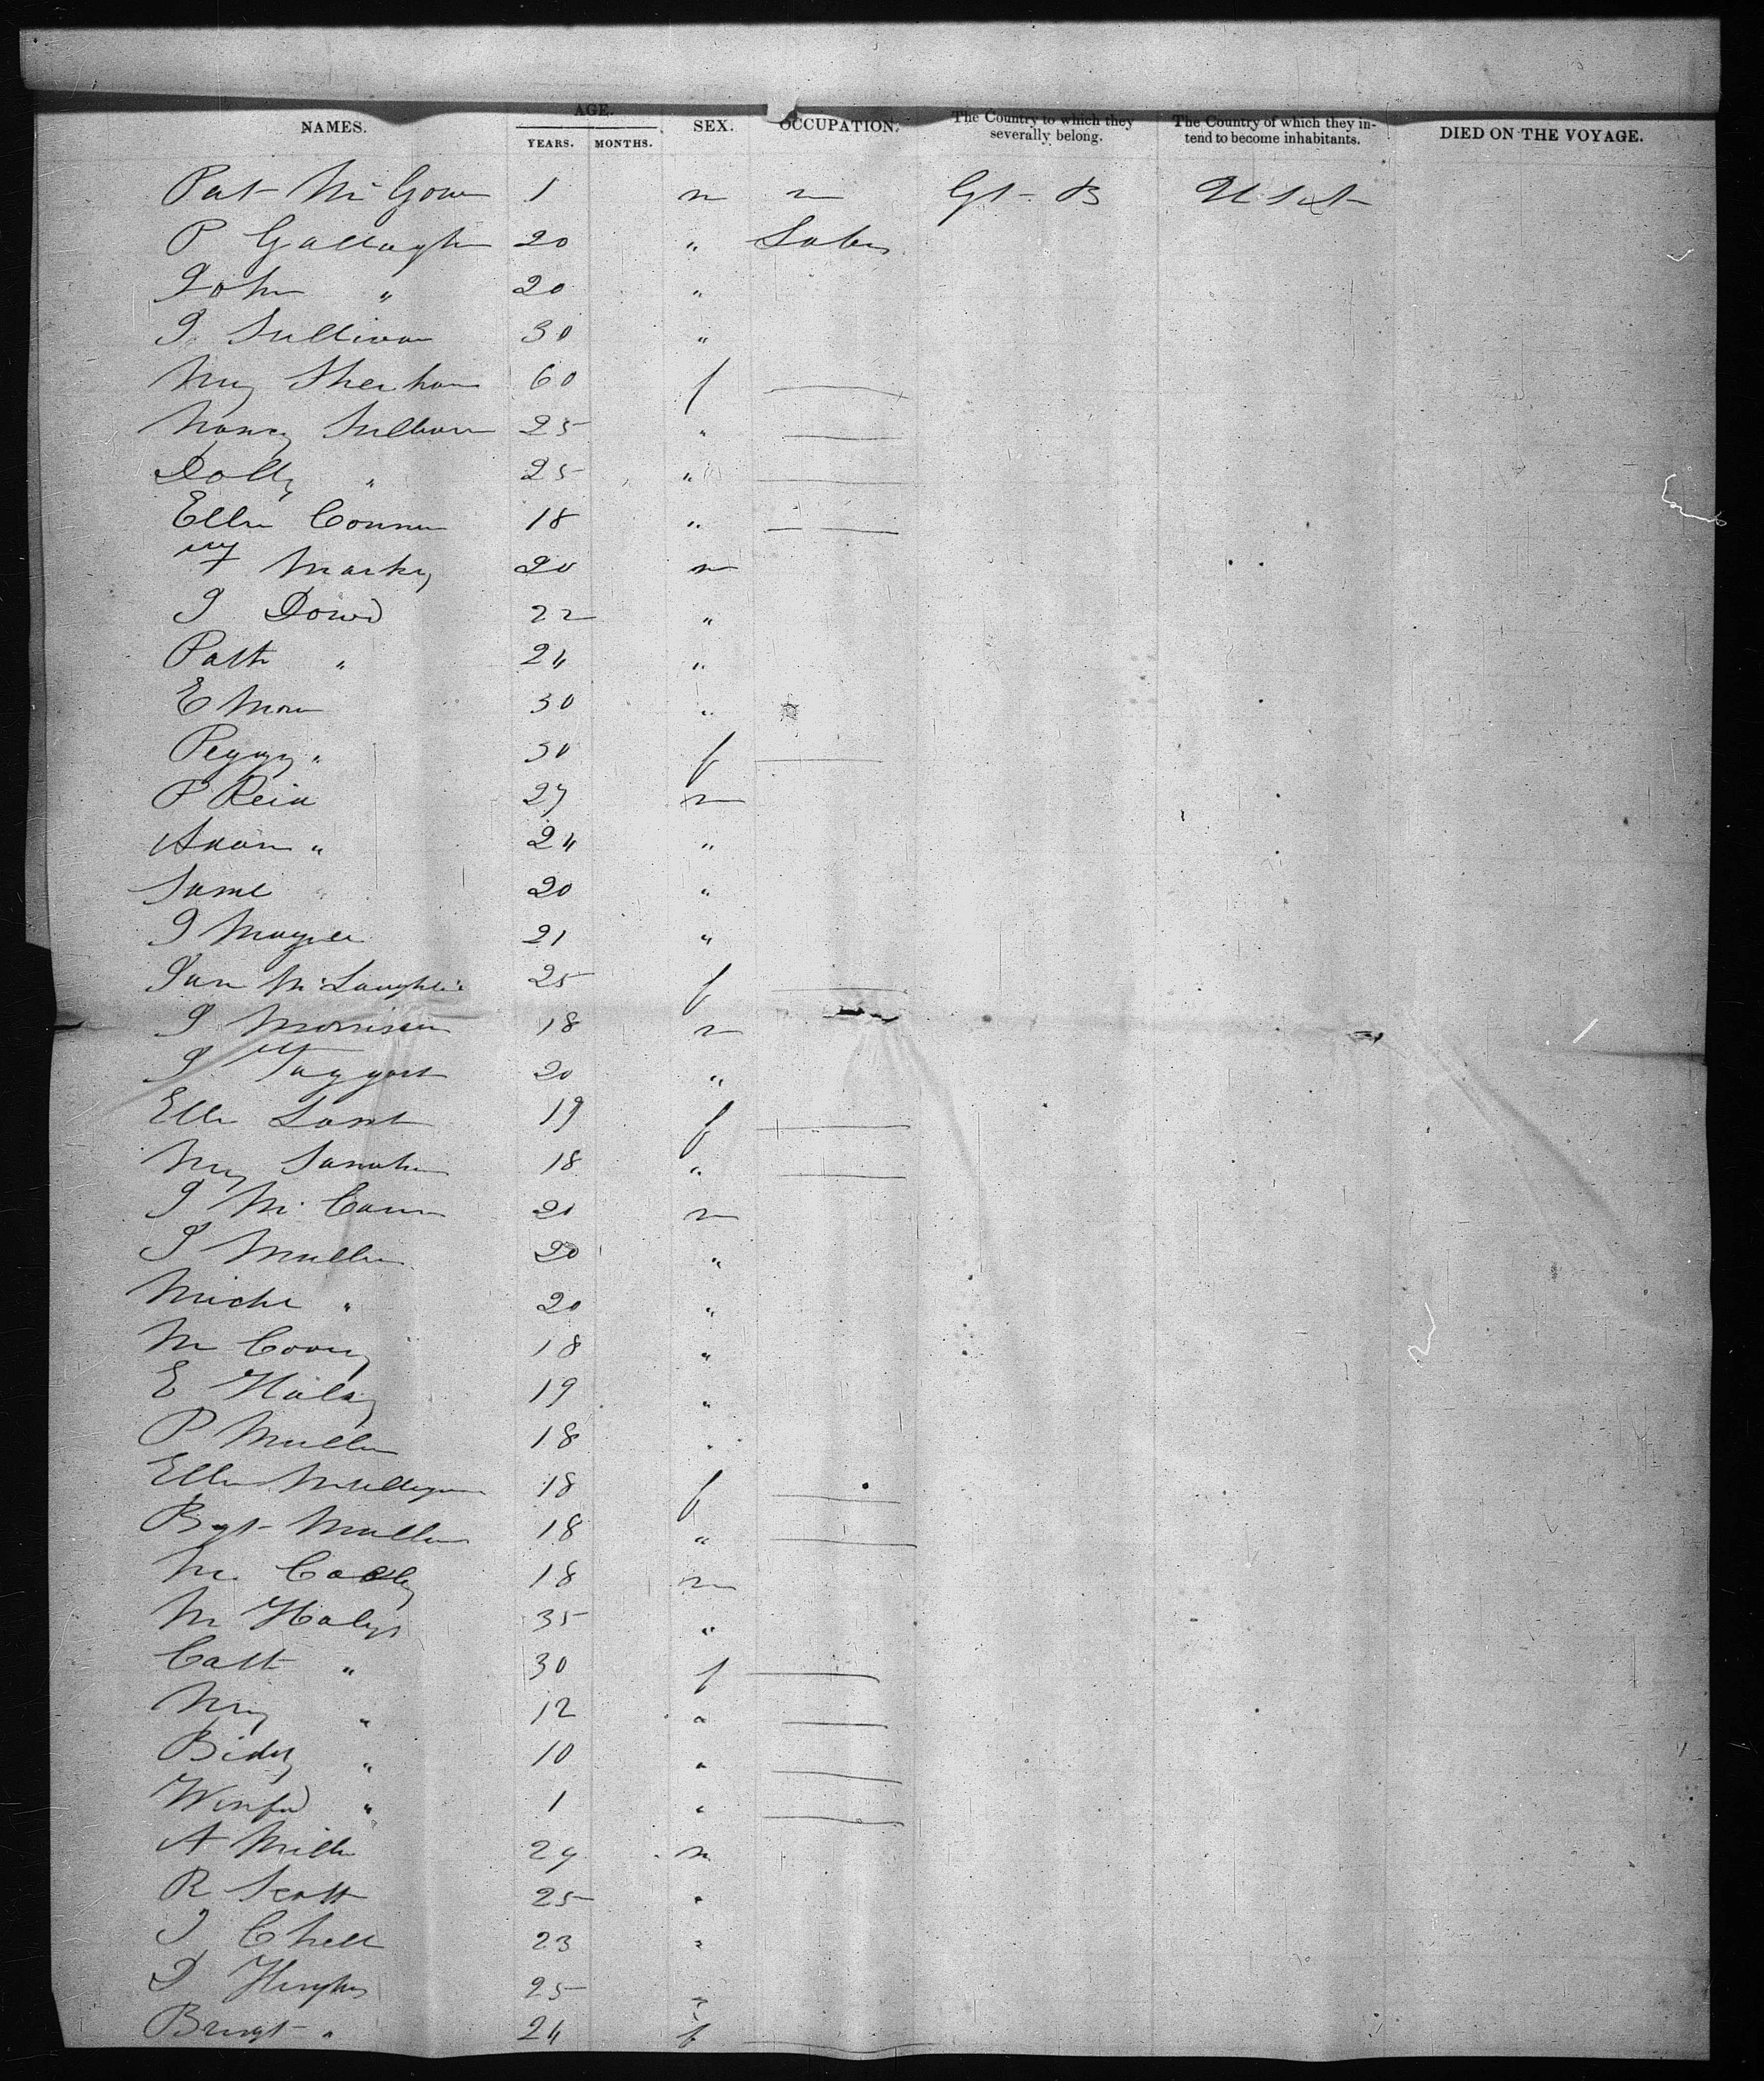 NAMES. AGE. YEARS. MONTHS. SEX. OCCUPATION. The Country to which they severally belong. The Country of which they intend to become inhabitants. DIED ON THE VOYAGE.
Pat McGowan 1 m Gt B U S A
P Gallagher 20 " Labor
John " 20 "
J Sullivan 30 "
Mry Sheehan 60 f
Nancy Sullivan 25 "
Dolly " 25 "
Ellen Connor 18 "
Markey 20 m
J Dowd 22 "
Patk " 24 "
E More 30 "
Peggy " 30 f
P Reid 27 m
Adam " 24 "
Jame " 20 "
J Magee 21 "
Jane McLaughlin 25 f
J Morrison 18 m
J Taggart 20 "
Ellen 19 f
Mry 18 "
J McCann 20 m
J Mullen 20 "
Michl " 20 "
M 18 "
E Haley 19 "
P Mullen 18 "
Ellen Mulligan 18 f
Bgt Mullen 18 "
M 18 m
M Haley 35 "
Cath " 30 f
Mry " 12 "
Bidy " 10 "
Winfd " 1 "
A Miller 29 m
R Scott 25 "
J 23 "
D Hughes 25 "
Bridgt " 24 f